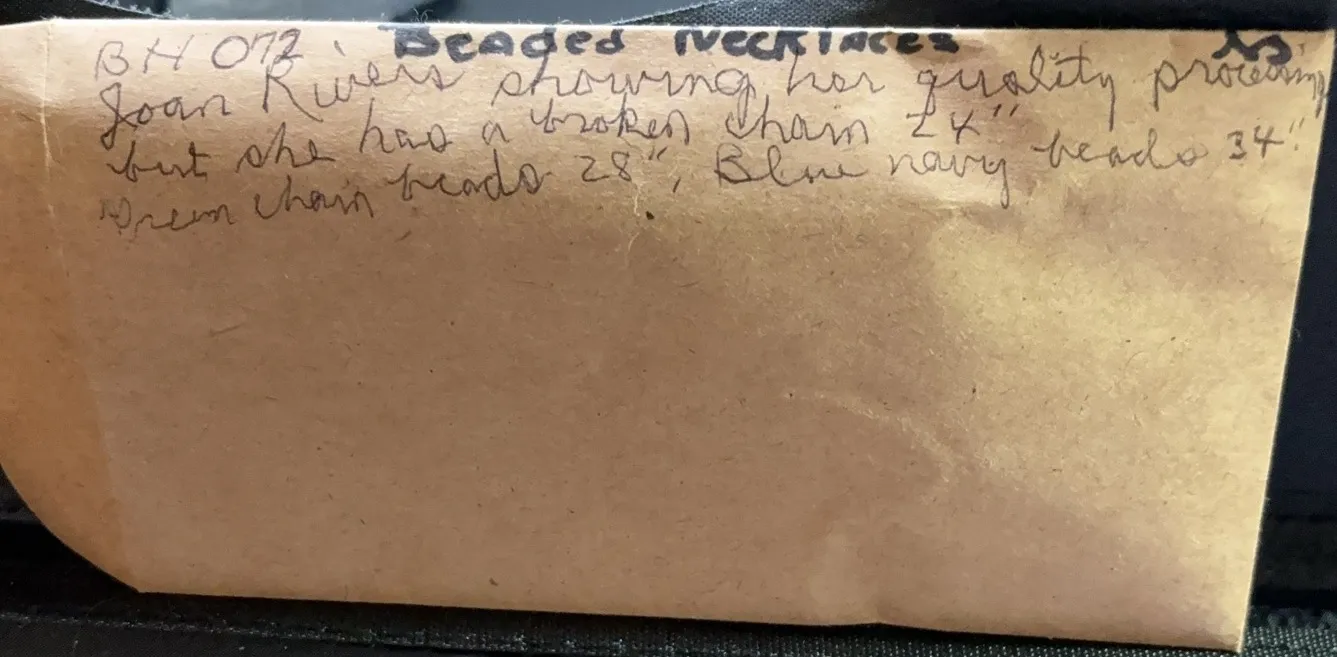 BH 072. Beaded Necklaces
Joan Rivers showing her quality processing
but she has a broken chain 24"
Green chain beads 28", Blue navy beads 34"